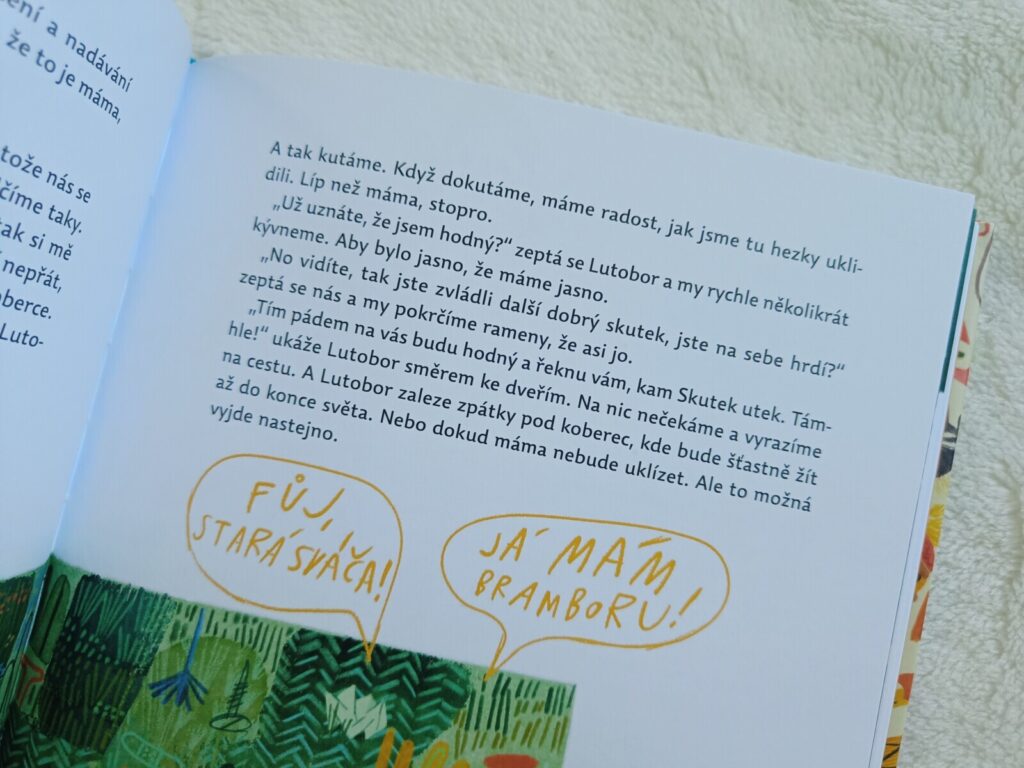 ení a nadávání
že to je máma,
tože nás se
číme taky.
tak si mě
nepřát,
berce.
Luto-
A tak kutáme. Když dokutáme, máme radost, jak jsme tu hezky ukli-
dili. Líp než máma, stopro.
„Už uznáte, že jsem hodný?“ zeptá se Lutobor a my rychle několikrát
kývneme. Aby bylo jasno, že máme jasno.
„No vidíte, tak jste zvládli další dobrý skutek, jste na sebe hrdí?“
zeptá se nás a my pokrčíme rameny, že asi jo.
„Tím pádem na vás budu hodný a řeknu vám, kam Skutek utek. Tám-
hle!“ ukáže Lutobor směrem ke dveřím. Na nic nečekáme a vyrazíme
na cestu. A Lutobor zaleze zpátky pod koberec, kde bude šťastně žít
až do konce světa. Nebo dokud máma nebude uklízet. Ale to možná
vyjde nastejno.
FŮJ,
STARÁ SVÁČA!
JÁ MÁM
BRAMBORU!